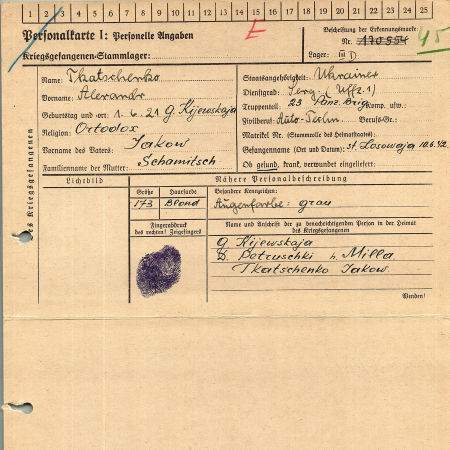 1 2 3 4 5 6 7 8 9 10 11 12 13 14 15 16 17 18 19 20 21 22 23 24 25
Personalkarte I: Personelle Angaben
Kriegsgefangenen-Stammlager:
Beschriftung der Erkennungsmarke:
Nr. 170554
45
Lager: III D
des Kriegsgefangenen
Name: Tkatschenko
Vorname: Alexandr
Geburtstag und -ort: 1.6.21 g. Kijewskaja
Religion: Ortodox
Vorname des Vaters: Jakow
Familienname der Mutter: Schamitsch
Staatsangehörigkeit: Ukrainer
Dienstgrad: Serg. (Uffz.)
Truppenteil: 23 Panz. Brig. Komp. usw.:
Zivilberuf: Auto- Berufs-Gr.:
Matrikel Nr. (Stammrolle des Heimatstaates):
Gefangennahme (Ort und Datum): st. Losowaja 10.6.42
Ob gesund, krank, verwundet eingeliefert:
Lichtbild
Nähere Personalbeschreibung
Größe Haarfarbe Besondere Kennzeichen:
173 Blond Augenfarbe: grau
Fingerabdruck
des rechten! Zeigefingers
Name und Anschrift der zu benachrichtigenden Person in der Heimat
des Kriegsgefangenen
g. Kijewskaja
D. Petruschki h. Milla
Tkatschenko Jakow.
Wenden!